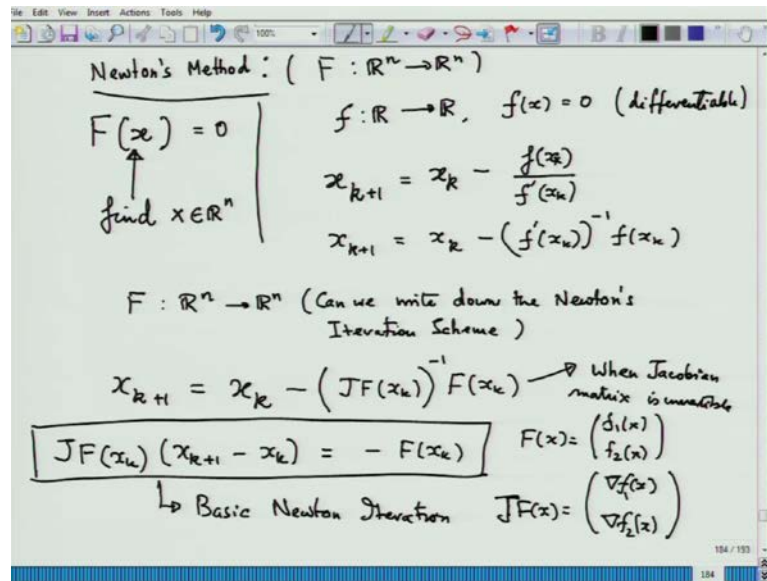 File Edit View Insert Actions Tools Help
100%
B I
Newton's Method : ( F : ℝⁿ → ℝⁿ )
F(x) = 0
find x ∈ ℝⁿ
f : ℝ → ℝ, f(x) = 0 (differentiable)
x_{k+1} = x_k - f(x_k) / f'(x_k)
x_{k+1} = x_k - (f'(x_k))^{-1} f(x_k)
F : ℝⁿ → ℝⁿ (Can we write down the Newton's
Iteration Scheme )
x_{k+1} = x_k - (JF(x_k))^{-1} F(x_k) → When Jacobian
matrix is invertible
JF(x_k) (x_{k+1} - x_k) = - F(x_k)
F(x) = (f_1(x) f_2(x))
↳ Basic Newton Iteration
JF(x) = (∇f_1(x) ∇f_2(x))
184 / 193
184